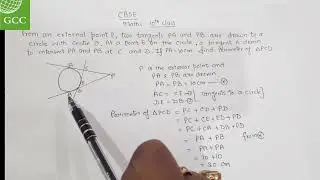 GCC
CBSE
Maths 10th class
From an external point P, two tangents PA and PB are drawn to a
circle with centre O. At a point E on the circle, a tangent drawn
to intersect PA and PB at C and D. If PA = 10cm find perimeter of ΔPCD
P is the exterior point and
PA & PB are drawn
PA = PB = 10cm
AC = CE
tangents to a circle
DE = DB
Perimeter of ΔPCD
= PC + CD + PD
= PC + CE + ED + PD
= PC + CA + DB + PD
= PA + PB
= PA + PA
= 10 + 10
= 20 cm